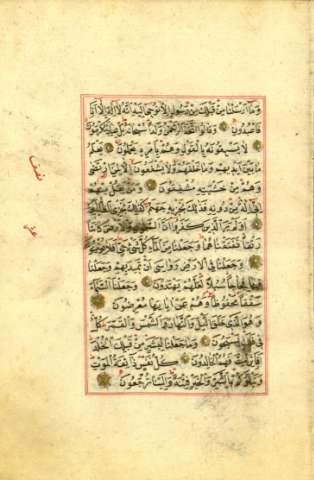 وما ارسلنا من قبلك من رسول الا نوحى اليه انه لا اله الا انا
فاعبدون وقالوا اتخذ الرحمن ولدا سبحانه بل عباد مكرمون
لا يسبقونه بالقول وهم بامره يعملون يعلم
ما بين ايديهم وما خلفهم ولا يشفعون الا لمن ارتضى
وهم من خشيته مشفقون ومن يقل منهم
انى اله من دونه فذلك نجزيه جهنم كذلك نجزى الظالمين
اولم ير الذين كفروا ان السموات والارض كانتا
رتقا ففتقناهما وجعلنا من الماء كل شىء حى افلا يؤمنون
وجعلنا فى الارض رواسى ان تميد بهم وجعلنا
فيها فجاجا سبلا لعلهم يهتدون وجعلنا السماء
سقفا محفوظا وهم عن اياتها معرضون
وهو الذى خلق الليل والنهار والشمس والقمر كل
فى فلك يسبحون وما جعلنا لبشر من قبلك الخلد
افائن مت فهم الخالدون كل نفس ذائقة الموت
ونبلوكم بالشر والخير فتنة والينا ترجعون